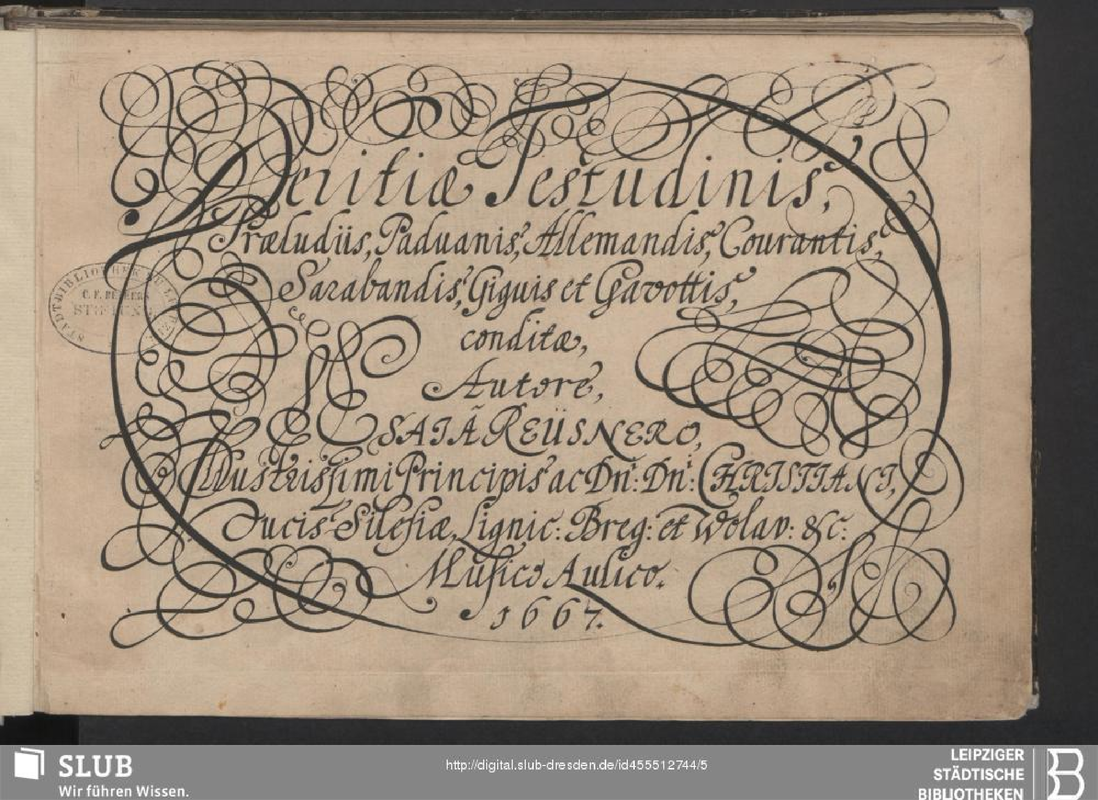 Delitiæ Testudinis,
Præludiis, Paduanis, Allemandis, Courantis,
Sarabandis, Giguis et Gavottis,
conditæ,
Autore,
ESAIÂ REÜSNERO,
Illustrissimi Principis ac Dn: Dn: CHRISTIANI,
Ducis Silesiæ, Lignic: Breg: et Wolav: &c:
Musico Aulico.
1667.
STADTBIBLIOTHEK
C. F. BECKERS
STIFTUNG
SLUB
Wir führen Wissen.
http://digital.slub-dresden.de/id455512744/5
LEIPZIGER
STÄDTISCHE
BIBLIOTHEKEN